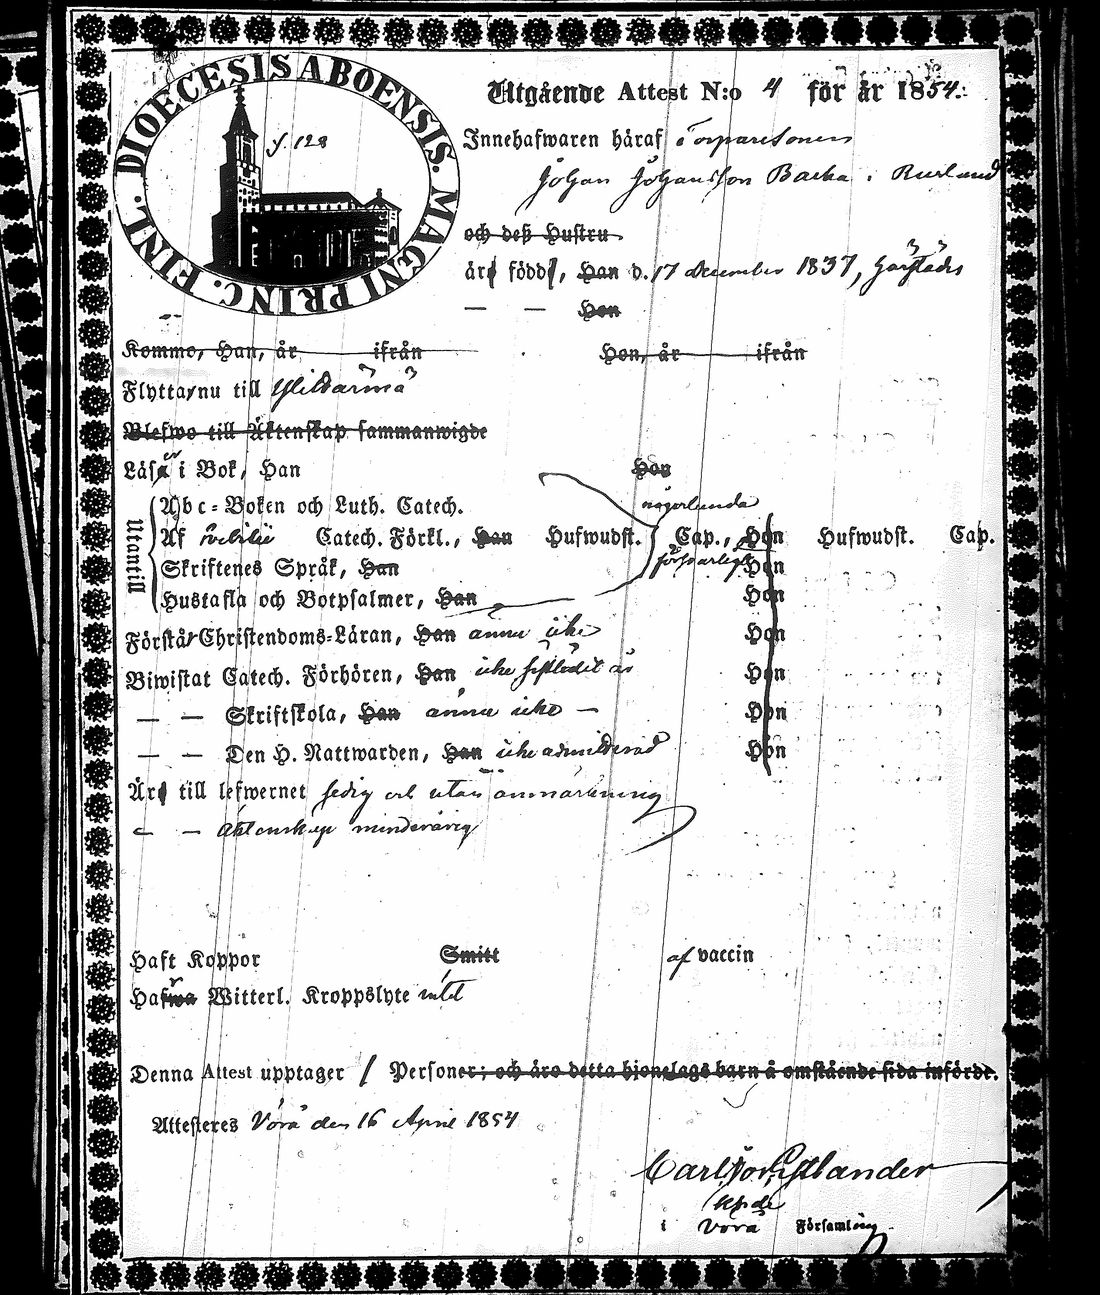 DIOECESIS ABOENSIS. MAGNI PRINC. FINL.
f 128
Utgående Attest N:o 4 för år 1854.
Innehafwaren häraf Torparesonen
Johan Johansson Backa i
och deß Hustru
äro födde, Han d. 17 december 1837,
— — Hon
Kommo, Han, år ifrån Hon, år ifrån
Flytta nu till Ylistarmä
Blefwo till Äktenskap sammanwigde
Läsa i Bok, Han Hon
Utantill
Abc-Boken och Luth. Catech. någorlunda
Af Catech. Förkl., Han Hufwudst. Cap., Hon Hufwudst. Cap.
Skriftenes Språk, Han försvarligt Hon
Hustafla och Botpsalmer, Han Hon
Förstå Christendoms-Läran, Han ännu icke Hon
Biwistat Catech. Förhören, Han icke sistledit år Hon
— — Skriftskola, Han ännu icke — Hon
— — Den H. Nattwarden, Han icke admitterad Hon
Äro till lefwernet sedig och utan anmärkning
— — Äktenskap minderårig
Haft Koppor Smitt af vaccin
Hafwa Witterl. Kroppslyte intet
Denna Attest upptager 1 Personer; och äro detta hjonelags barn å omstående sida införde.
Attesteres Vörå den 16 April 1854
Carl
i Vörå Församling